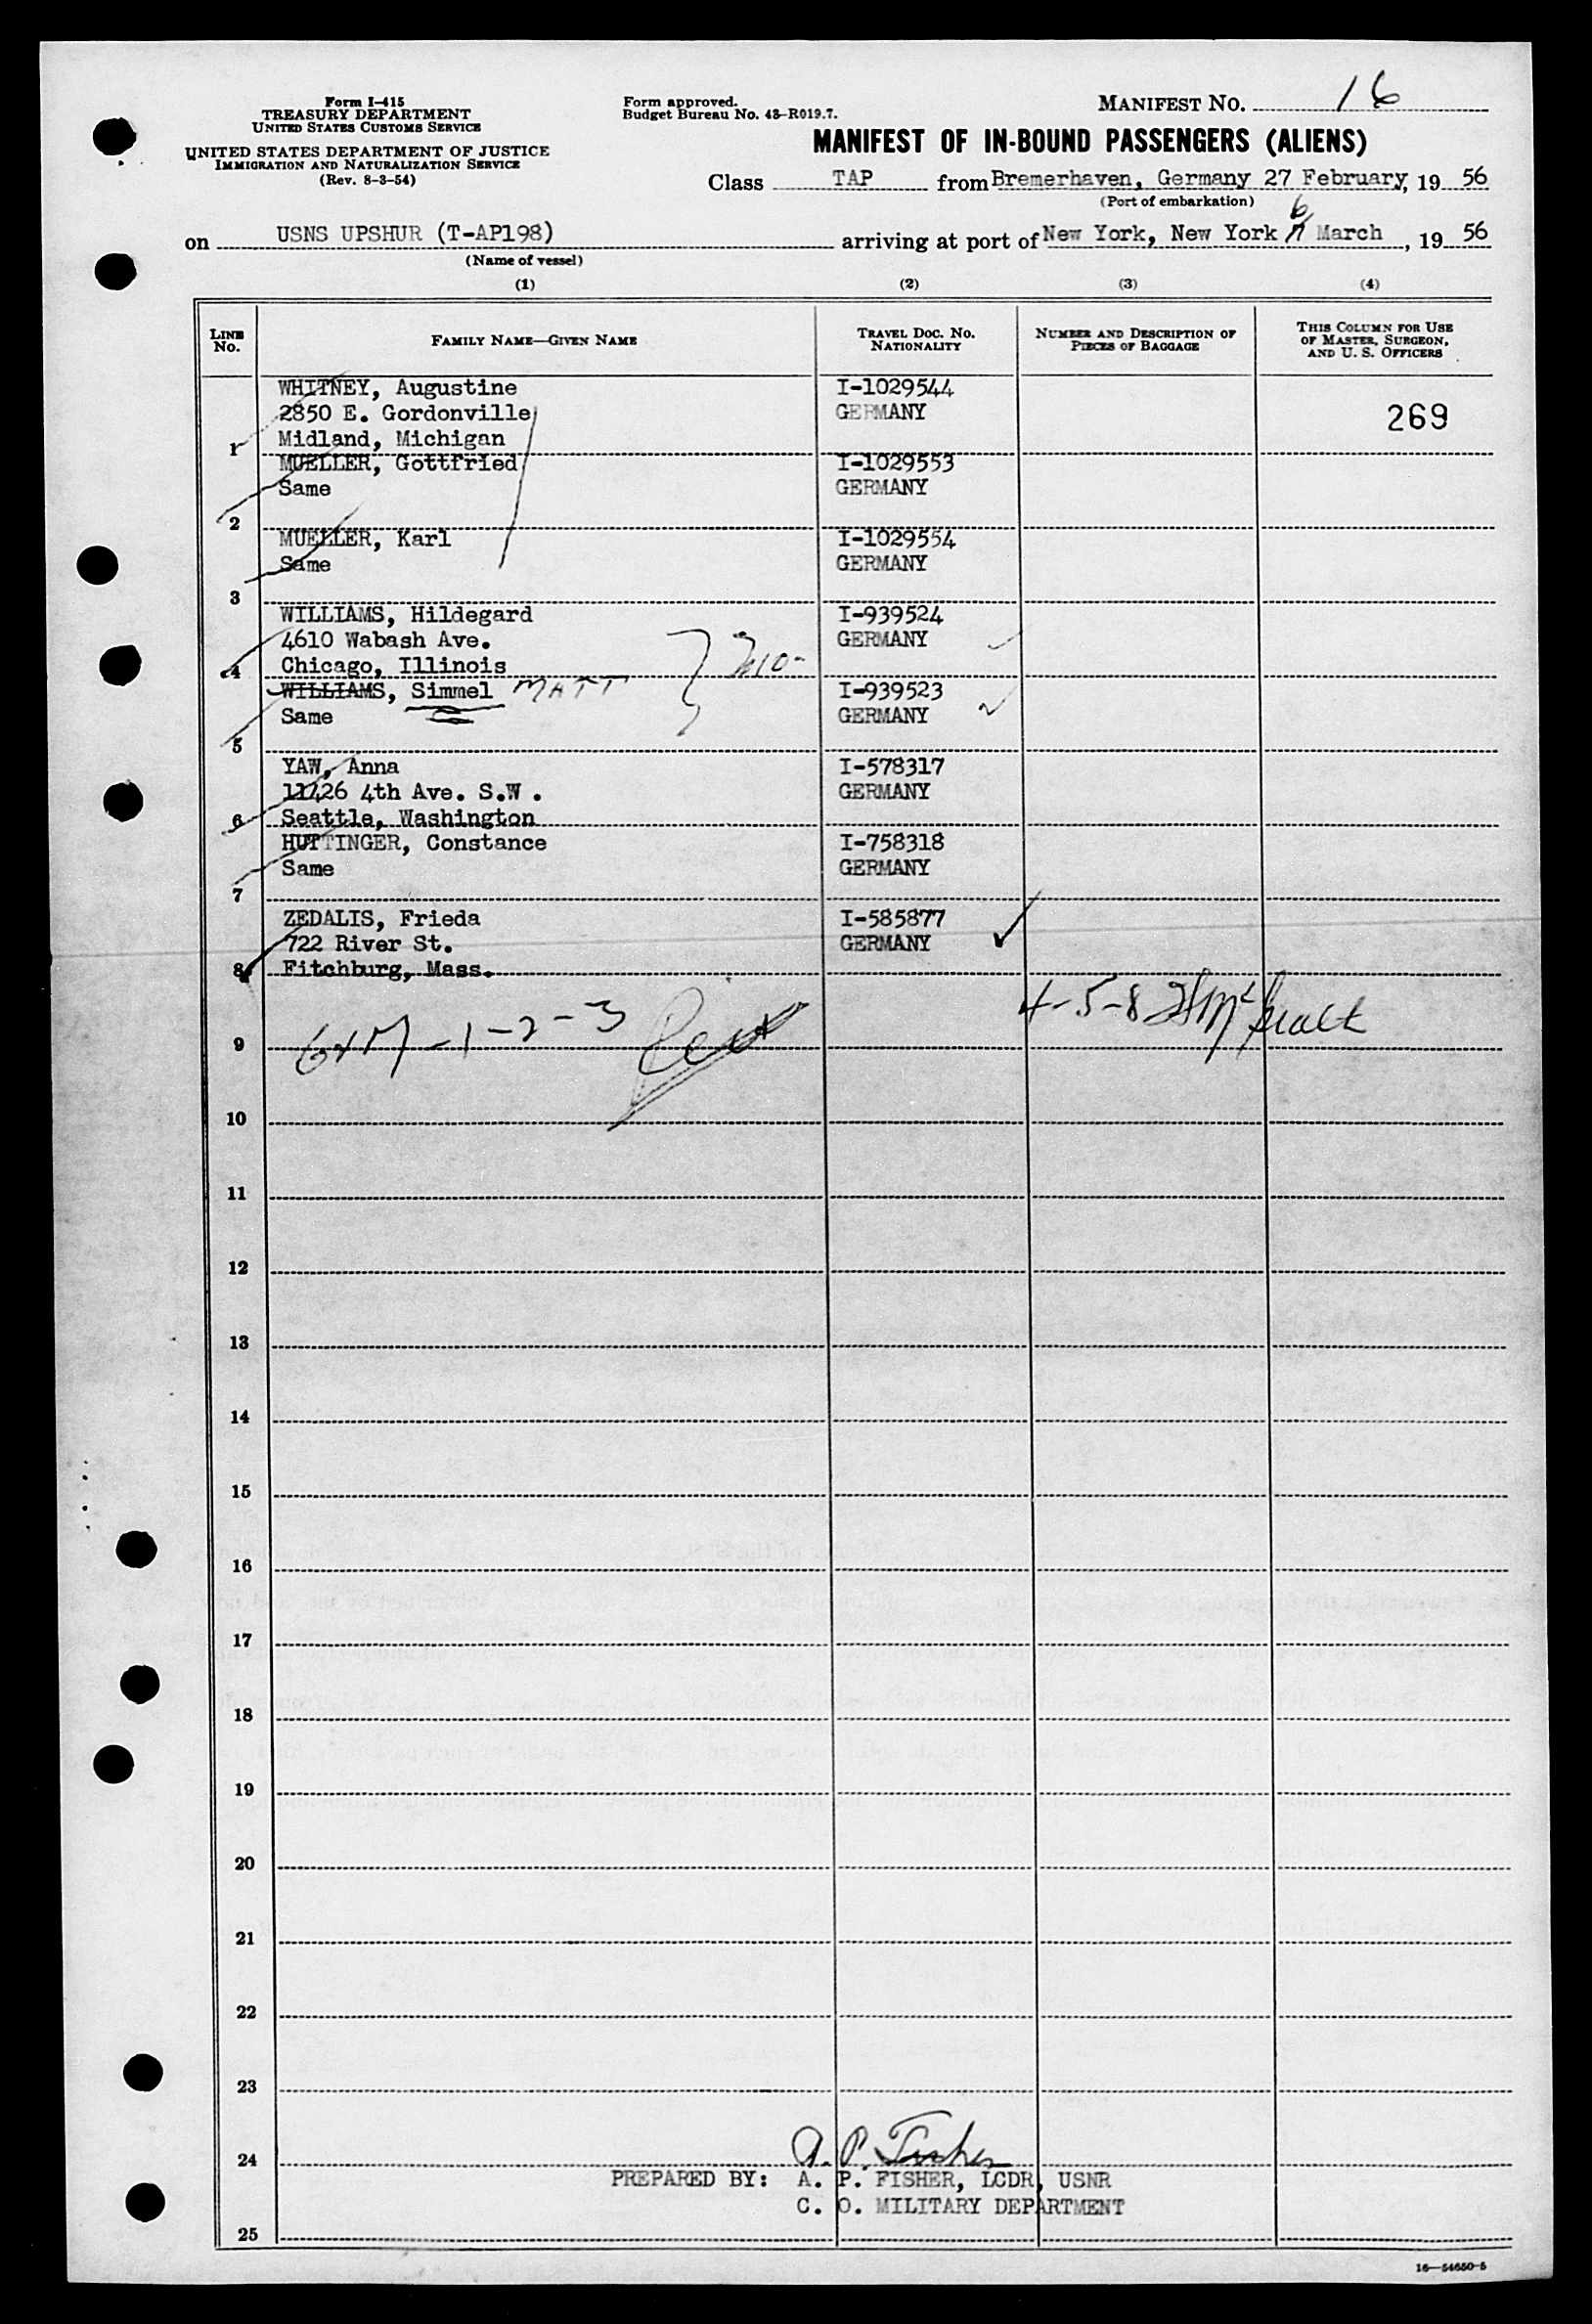 Form I-415
TREASURY DEPARTMENT
UNITED STATES CUSTOMS SERVICE
UNITED STATES DEPARTMENT OF JUSTICE
IMMIGRATION AND NATURALIZATION SERVICE
(Rev. 8-3-54)
Form approved.
Budget Bureau No. 43-R019.7.
MANIFEST NO. 16
MANIFEST OF IN-BOUND PASSENGERS (ALIENS)
Class TAP from Bremerhaven, Germany 27 February, 19 56
(Port of embarkation)
6
on USNS UPSHUR (T-AP198) arriving at port of New York, New York 7 March, 19 56
(Name of vessel)
(1) (2) (3) (4)
LINE NO. FAMILY NAME—GIVEN NAME TRAVEL DOC. NO. NATIONALITY NUMBER AND DESCRIPTION OF PIECES OF BAGGAGE THIS COLUMN FOR USE OF MASTER, SURGEON, AND U. S. OFFICERS
WHITNEY, Augustine I-1029544
2850 E. Gordonville GERMANY 269
1 Midland, Michigan
MUELLER, Gottfried I-1029553
Same GERMANY
2
MUELLER, Karl I-1029554
Same GERMANY
3
WILLIAMS, Hildegard I-939524
4610 Wabash Ave. GERMANY
4 Chicago, Illinois
WILLIAMS, Simmel MATT I-939523
Same GERMANY
5
YAW, Anna I-578317
11426 4th Ave. S.W. GERMANY
6 Seattle, Washington
HUTTINGER, Constance I-758318
Same GERMANY
7
ZEDALIS, Frieda I-585877
722 River St. GERMANY
8 Fitchburg, Mass.
4-5-8
9 -1-2-3
10
11
12
13
14
15
16
17
18
19
20
21
22
23
24 A. P. Fisher
PREPARED BY: A. P. FISHER, LCDR, USNR
C. O. MILITARY DEPARTMENT
25
16—54650-5